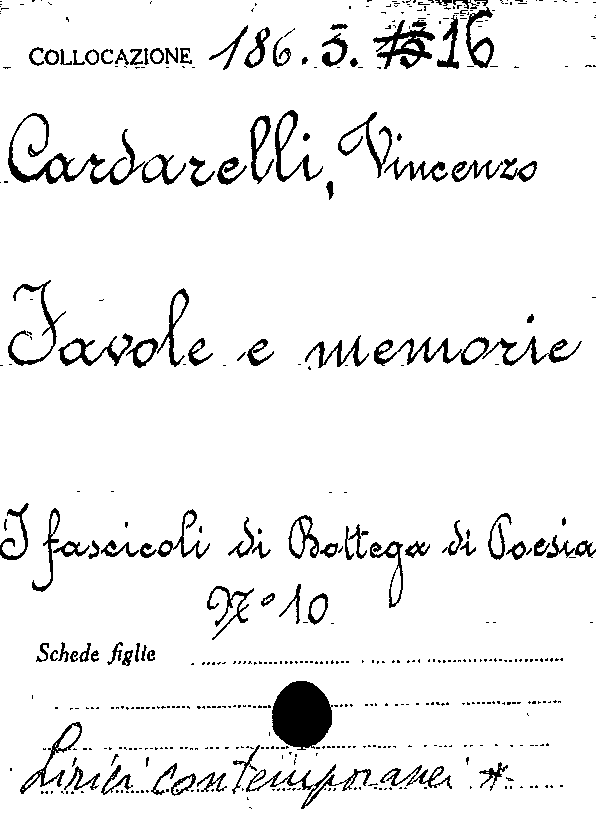 COLLOCAZIONE 186.5. 16
Cardarelli, Vincenzo
Favole e memorie
I fascicoli di Bottega di Poesia
N° 10
Schede figlie
Lirici contemporanei *